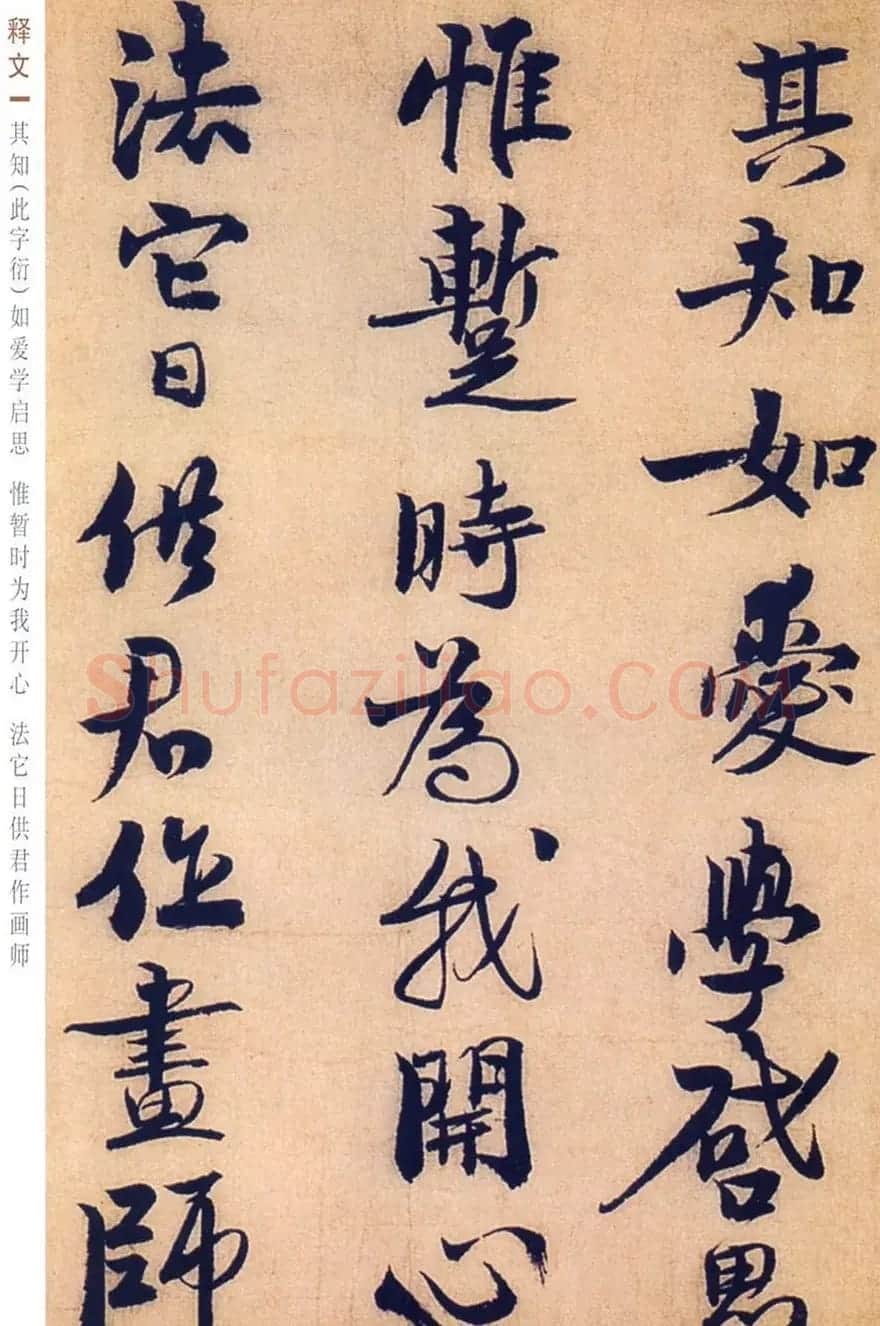 其知如愛學啓思
惟蹔時為我開心
法它日供君作畫師
释文
其知（此字衍）如爱学启思 惟暂时为我开心 法它日供君作画师
Shufaziliao.COM